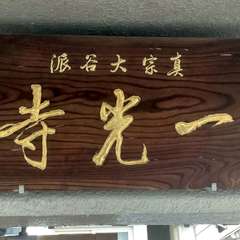 真宗大谷派
一光寺